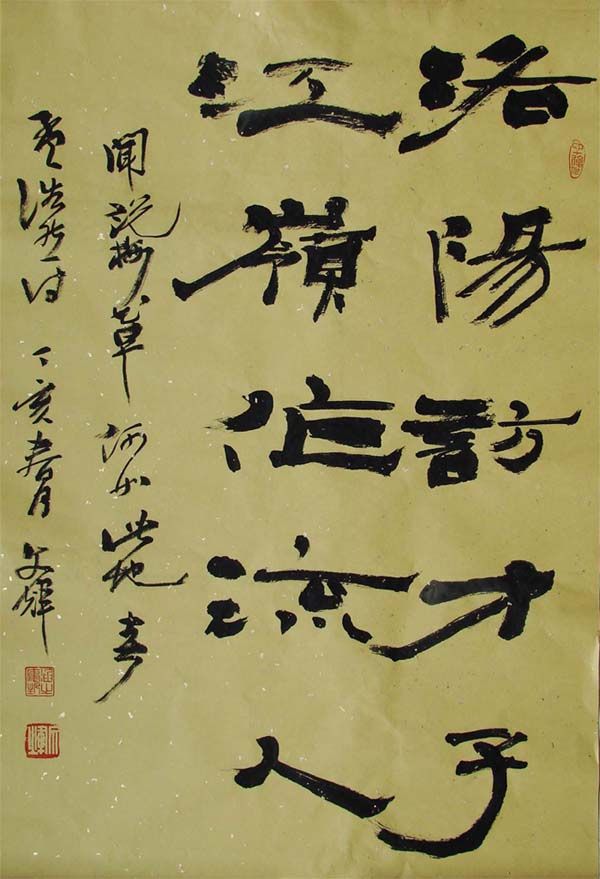 洛陽訪才子
江嶺作流人
聞說梅花早何如此地春
孟浩然詩丁亥春月文輝